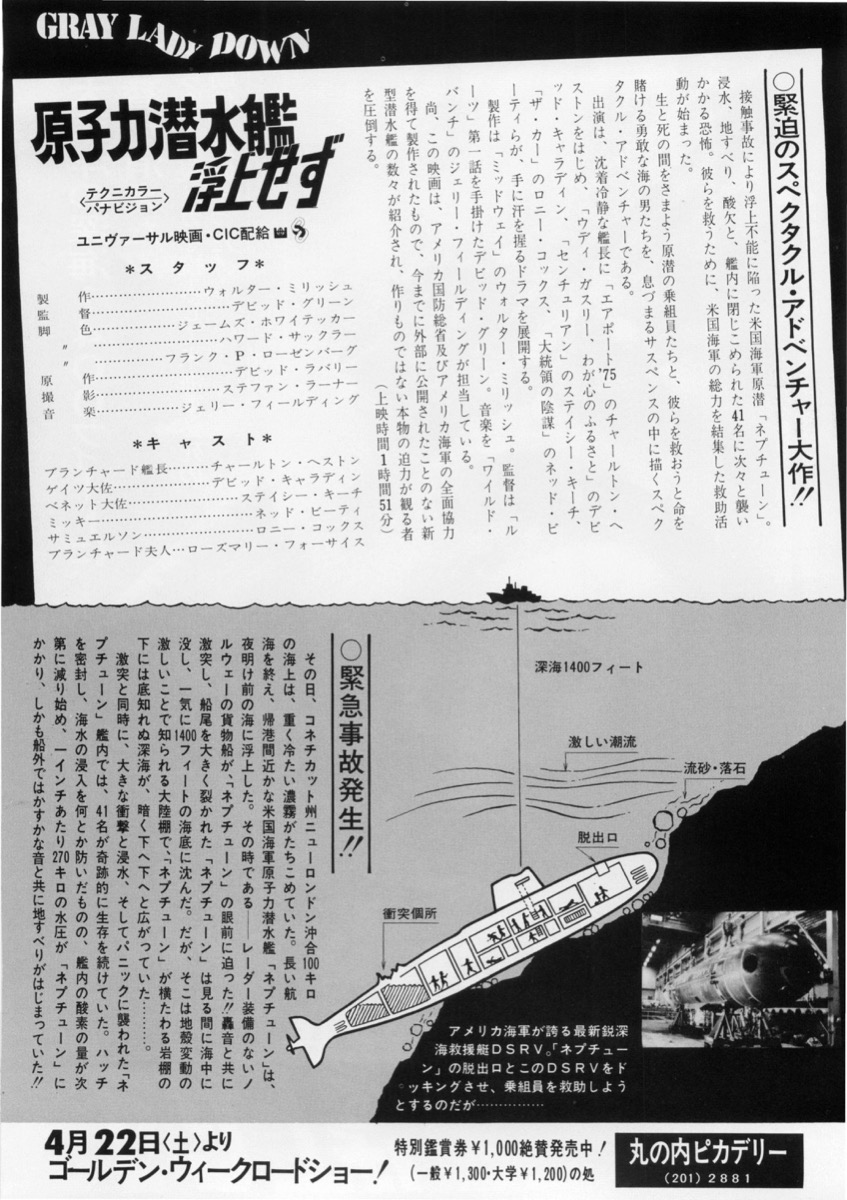 GRAY LADY DOWN
原子力潜水艦
浮上せず
〈テクニカラー
パナビジョン〉
ユニヴァーサル映画・CIC配給
＊スタッフ＊
製作……………ウォルター・ミリッシュ
監督……………デビッド・グリーン
脚色……………ジェームズ・ホワイテッカー
〃……………ハワード・サックラー
〃……………フランク・P・ローゼンバーグ
原作……………デビッド・ラバリー
撮影……………ステファン・ラーナー
音楽……………ジェリー・フィールディング
＊キャスト＊
ブランチャード艦長………チャールトン・ヘストン
ゲイツ大佐………デビッド・キャラディン
ベネット大佐………ステイシー・キーチ
ミッキー………ネッド・ビーティ
サミュエルソン………ロニー・コックス
ブランチャード夫人…ローズマリー・フォーサイス
○緊迫のスペクタクル・アドベンチャー大作!!
接触事故により浮上不能に陥った米国海軍原潜「ネプチューン」。
浸水、地すべり、酸欠と、艦内に閉じこめられた41名に次々と襲い
かかる恐怖。彼らを救うために、米国海軍の総力を結集した救助活
動が始まった。
生と死の間をさまよう原潜の乗組員たちと、彼らを救おうと命を
賭ける勇敢な海の男たちを、息づまるサスペンスの中に描くスペク
タクル・アドベンチャーである。
出演は、沈着冷静な艦長に「エアポート'75」のチャールトン・ヘ
ストンをはじめ、「ウディ・ガスリー、わが心のふるさと」のデビ
ッド・キャラディン、「センチュリアン」のステイシー・キーチ、
「ザ・カー」のロニー・コックス、「大統領の陰謀」のネッド・ビ
ーティらが、手に汗を握るドラマを展開する。
製作は「ミッドウェイ」のウォルター・ミリッシュ。監督は「ル
ーツ」第一話を手掛けたデビッド・グリーン。音楽を「ワイルド・
バンチ」のジェリー・フィールディングが担当している。
尚、この映画は、アメリカ国防総省及びアメリカ海軍の全面協力
を得て製作されたもので、今までに外部に公開されたことのない新
型潜水艦の数々が紹介され、作りものではない本物の迫力が観る者
を圧倒する。
（上映時間1時間51分）
深海1400フィート
激しい潮流
流砂・落石
脱出口
衝突個所
○緊急事故発生!!
その日、コネチカット州ニューロンドン沖合100キロ
の海上は、重く冷たい濃霧がたちこめていた。長い航
海を終え、帰港間近かな米国海軍原子力潜水艦「ネプチューン」は、
夜明け前の海に浮上した。その時である――レーダー装備のないノ
ルウェーの貨物船が、「ネプチューン」の眼前に迫った!!轟音と共に
激突し、船尾を大きく裂かれた「ネプチューン」は見る間に海中に
没し、一気に1400フィートの海底に沈んだ。だが、そこは地殻変動の
激しいことで知られる大陸棚で、「ネプチューン」が横たわる岩棚の
下には底知れぬ深海が、暗く下へ下へと広がっていた………。
激突と同時に、大きな衝撃と浸水、そしてパニックに襲われた「ネ
プチューン」艦内では、41名が奇跡的に生存を続けていた。ハッチ
を密封し、海水の浸入を何とか防いだものの、艦内の酸素の量が次
第に減り始め、一インチあたり270キロの水圧が「ネプチューン」に
かかり、しかも船外ではかすかな音と共に地すべりがはじまっていた!!
アメリカ海軍が誇る最新鋭深
海救援艇DSRV。「ネプチュー
ン」の脱出口とこのDSRVをド
ッキングさせ、乗組員を救助しよう
とするのだが……………
4月22日〈土〉より
ゴールデン・ウィークロードショー！
特別鑑賞券￥1,000絶賛発売中！
(一般￥1,300・大学￥1,200)の処
丸の内ピカデリー
(201) 2881